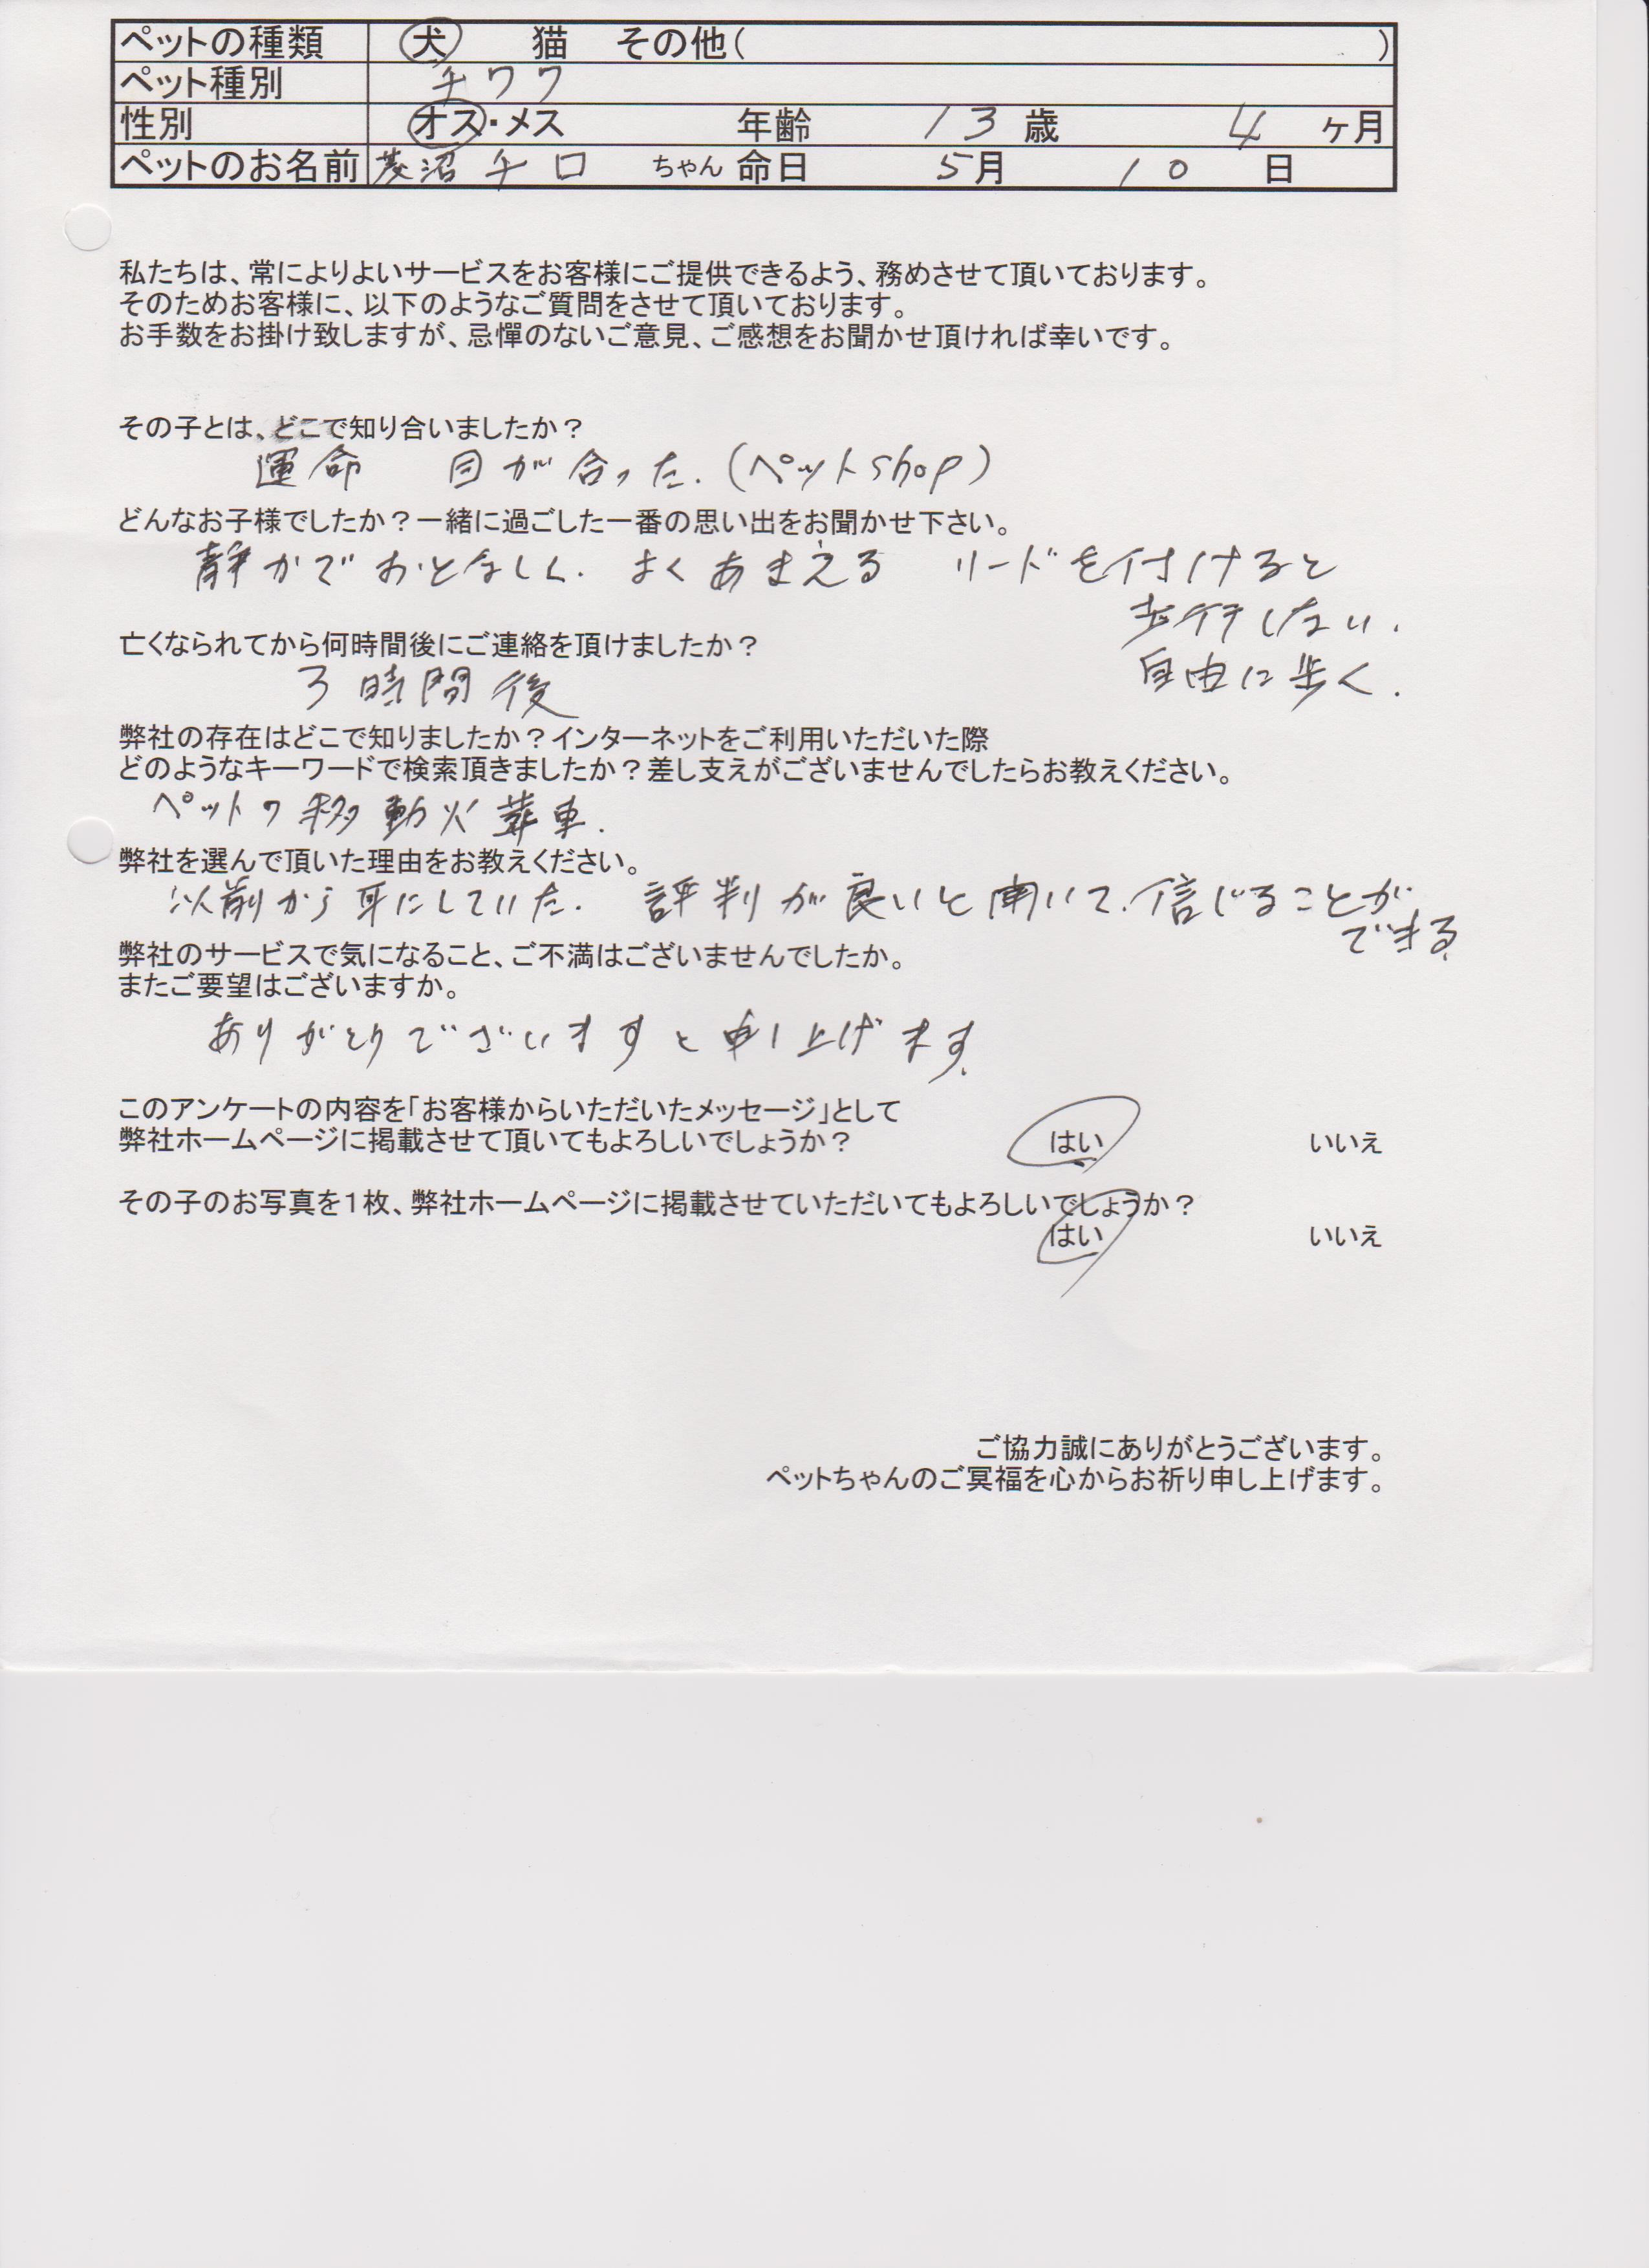 ペットの種類 犬 猫 その他( )
ペット種別 チワワ
性別 オス・メス 年齢 13歳 4ヶ月
ペットのお名前 菱沼チロ ちゃん 命日 5月 10日
私たちは、常によりよいサービスをお客様にご提供できるよう、務めさせて頂いております。
そのためお客様に、以下のようなご質問をさせて頂いております。
お手数をお掛け致しますが、忌憚のないご意見、ご感想をお聞かせ頂ければ幸いです。
その子とは、どこで知り合いましたか?
運命 目が合った.(ペットshop)
どんなお子様でしたか?一緒に過ごした一番の思い出をお聞かせ下さい。
静かでおとなしく. よくあまえる リードを付けると
歩行しない.
自由に歩く.
亡くなられてから何時間後にご連絡を頂けましたか?
3時間後
弊社の存在はどこで知りましたか?インターネットをご利用いただいた際
どのようなキーワードで検索頂きましたか?差し支えがございませんでしたらお教えください。
ペットの移動火葬車.
弊社を選んで頂いた理由をお教えください。
以前から耳にしていた. 評判が良いと聞いて.信じることが
できる.
弊社のサービスで気になること、ご不満はございませんでしたか。
またご要望はございますか。
ありがとうございますと申し上げます.
このアンケートの内容を「お客様からいただいたメッセージ」として
弊社ホームページに掲載させて頂いてもよろしいでしょうか? はい いいえ
その子のお写真を1枚、弊社ホームページに掲載させていただいてもよろしいでしょうか?
はい いいえ
ご協力誠にありがとうございます。
ペットちゃんのご冥福を心からお祈り申し上げます。